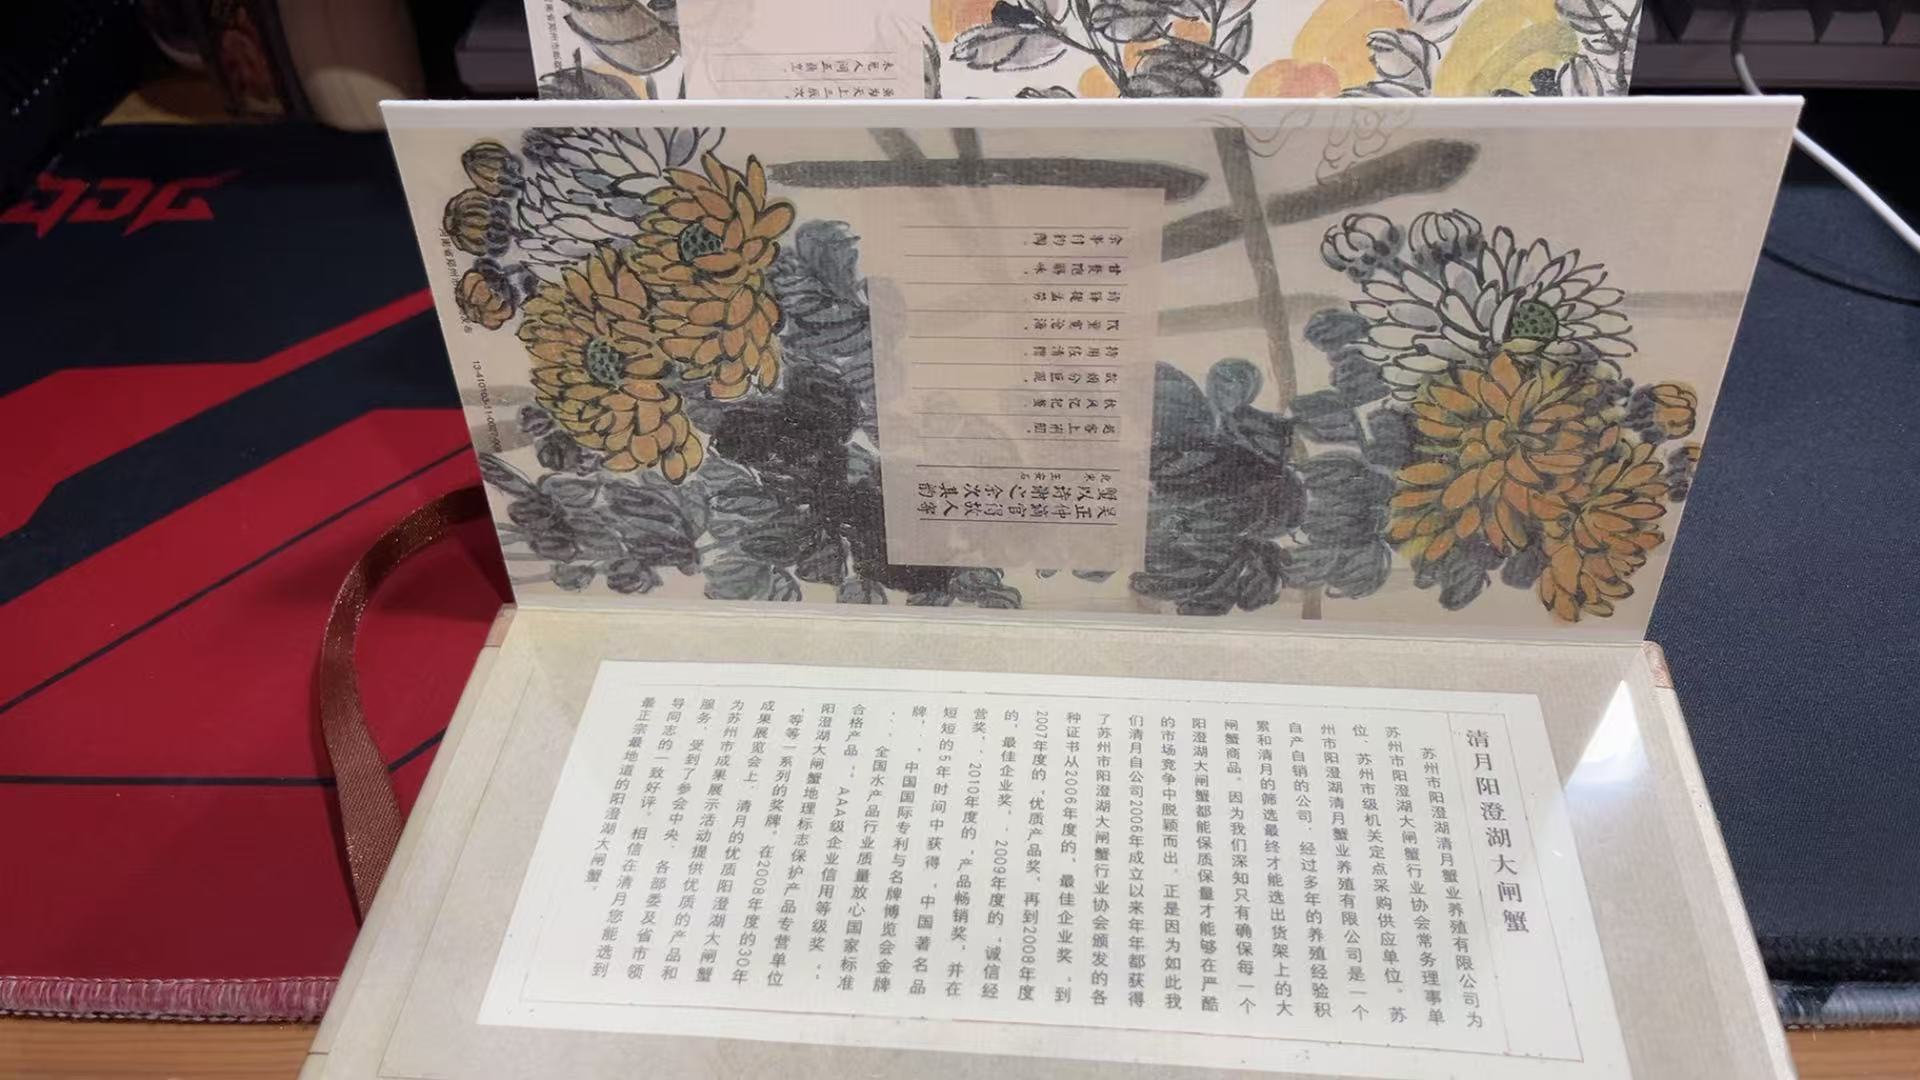 清月阳澄湖大闸蟹
苏州市阳澄湖清月蟹业养殖有限公司为
苏州市阳澄湖大闸蟹行业协会常务理事单
位、苏州市级机关定点采购供应单位。苏
州市阳澄湖清月蟹业养殖有限公司是一个
自产自销的公司，经过多年的养殖经验积
累和清月的筛选最终才能选出货架上的大
闸蟹商品。因为我们深知只有确保每一个
阳澄湖大闸蟹都能保质保量才能够在严酷
的市场竞争中脱颖而出。正是因为如此我
们清月自公司2006年成立以来年年都获得
了苏州市阳澄湖大闸蟹行业协会颁发的各
种证书从2006年度的，最佳企业奖，到
2007年度的“优质产品奖”再到2008年度
的，最佳企业奖、2009年度的“诚信经
营奖、2010年度的“产品畅销奖，并在
短短的5年时间中获得，中国著名品
牌、中国国际专利与名牌博览会金牌
、全国水产品行业质量放心国家标准
合格产品、AAA级企业信用等级奖、
阳澄湖大闸蟹地理标志保护产品专营单位
，等等一系列的奖牌。在2008年度的30年
成果展览会上，清月的优质阳澄湖大闸蟹
为苏州市成果展示活动提供优质的产品和
服务，受到了参会中央、各部委及省市领
导同志的一致好评。相信在清月您能选到
最正宗最地道的阳澄湖大闸蟹。
吴正仲谪官得故人寄
蟹以诗谢之余次其韵
北宋 王安石
越客上荆舠，
秋风忆把螯。
故烦分巨跪，
持用佐清糟。
饮量宽沧海，
诗锋捷孟劳。
甘餐饱觞咏，
余事付钓陶。
虽为天上三辰次，
未免人间五鼎烹。